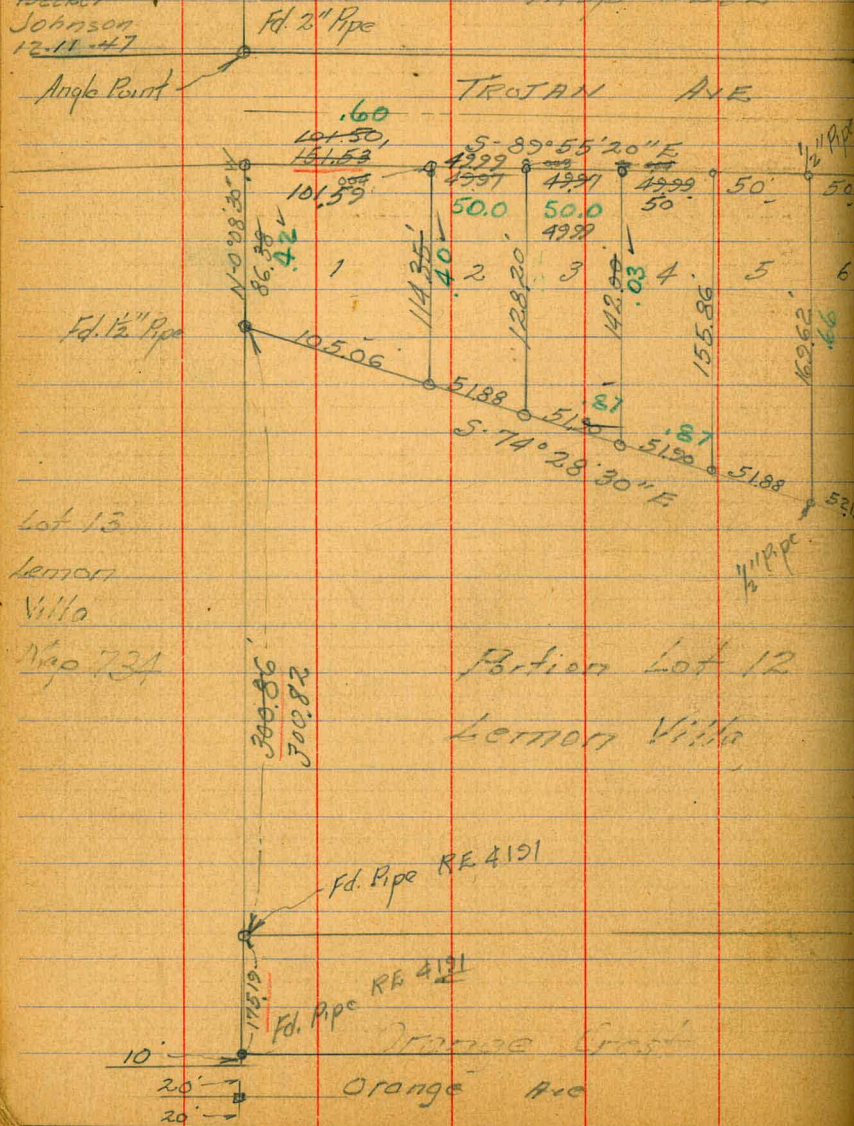 Johnson
12-11-47
Fd. 2" Pipe
Angle Point
TROJAN AVE
.60
101.50
151.53
101.59
S-89°55'20"E
49.99
49.97
50.0
49.97
50.0
49.99
49.99
50'
50'
1/2" Pipe
50
N-0°08'30"W
86.38
.42
1
114.35'
.40
2
128.20'
3
142.00
.03
4
155.86'
5
169.62'
.66
6
Fd. 1½" Pipe
105.06
51.88
51.90
.87
51.90
.87
51.88
52.
S-74°28'30"E
1/2" Pipe
Lot 13
Lemon
Villa
Map 734
300.86'
300.82
Portion Lot 12
Lemon Villa
Fd. Pipe RE 4191
175.19
Fd. Pipe RE 4191
Orange Crest
10'
20'
20'
Orange Ave